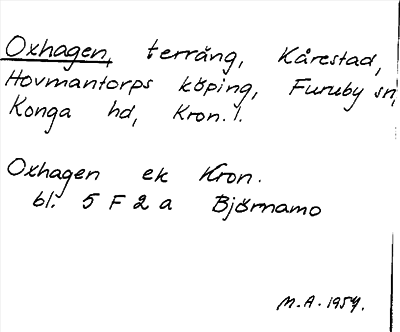 Oxhagen, terräng, Kårestad,
Hovmantorps köping, Furuby sn,
Konga hd, Kron. l.
Oxhagen ek Kron.
bl. 5 F 2 a Björnamo
M.A. 1957.